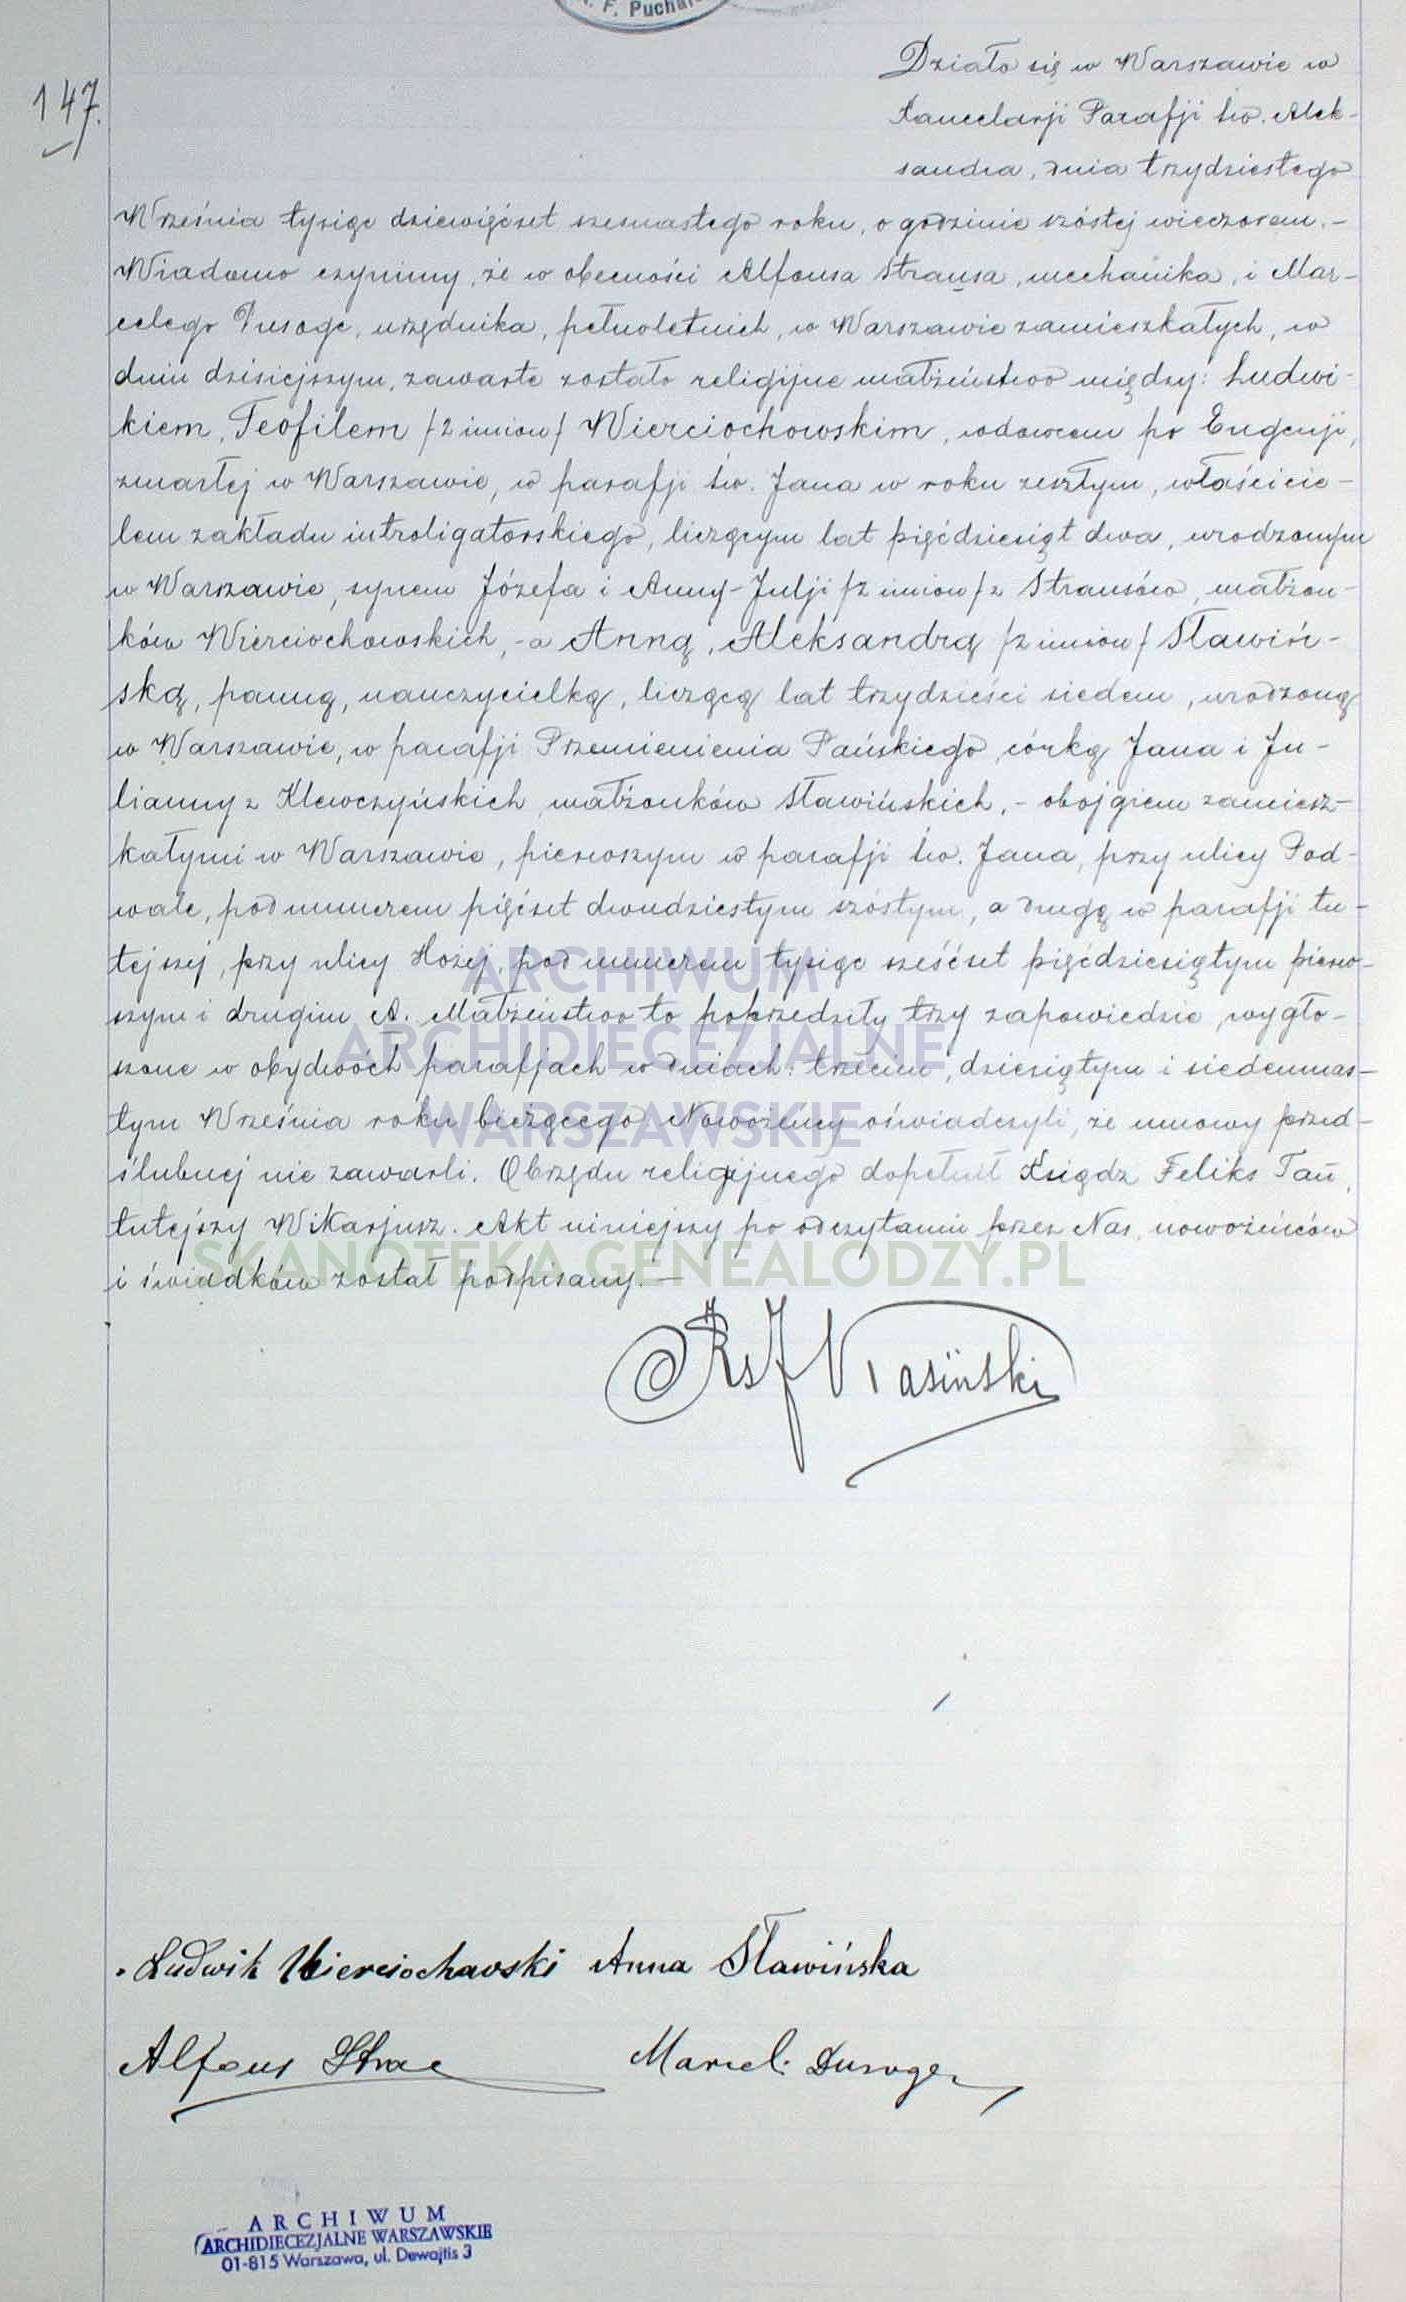 F. Puchal
147.
Działo się w Warszawie w
Kancelarji Parafji św. Alek-
sandra, dnia trzydziestego
Września tysiąc dziewięćset szesnastego roku, o godzinie szóstej wieczorem.-
Wiadomo czynimy, że w obecności Alfonsa Strausa, mechanika, i Mar-
celego Dusoge, urzędnika, pełnoletnich, w Warszawie zamieszkałych, w
dniu dzisiejszym, zawarte zostało religijne małżeństwo między: Ludwi-
kiem, Teofilem /2 imion/ Wierciochowskim, wdowcem po Eugenji,
zmarłej w Warszawie, w parafji św. Jana w roku zeszłym, właścicie-
lem zakładu introligatorskiego, liczącym lat pięćdziesiąt dwa, urodzonym
w Warszawie, synem Józefa i Anny-Julji /2 imion/ z Strausów, małżon-
ków Wierciochowskich, - a Anną, Aleksandrą /2 imion/ Sławiń-
ską, panną, nauczycielką, liczącą lat trzydzieści siedem, urodzoną
w Warszawie, w parafji Przemienienia Pańskiego, córką Jana i Ju-
lianny z Klewczyńskich, małżonków Sławińskich, - obojgiem zamiesz-
kałymi w Warszawie, pierwszym w parafji św. Jana, przy ulicy Pod-
wale, pod numerem pięćset dwudziestym szóstym, a drugą w parafji tu-
tejszej, przy ulicy Hożej, pod numerem tysiąc sześćset pięćdziesiątym pierw-
szym i drugim A. Małżeństwo to poprzedziły trzy zapowiedzie, wygło-
szone w obydwóch parafjach w dniach: trzecim, dziesiątym i siedemnas-
tym Września roku bieżącego. Nowożeńcy oświadczyli, że umowy przed-
ślubnej nie zawarli. Obrzędu religijnego dopełnił Ksiądz Feliks Tań,
tutejszy Wikarjusz. Akt niniejszy po odczytaniu przez Nas, nowożeńców
i świadków został podpisany.-
ARCHIWUM
ARCHIDIECEZJALNE
WARSZAWSKIE
SKANOTEKA.GENEALODZY.PL
Ludwik Wierciochowski Anna Sławińska
Alfons Marceli Dusoge
ARCHIWUM
ARCHIDIECEZJALNE WARSZAWSKIE
01-815 Warszawa, ul. Dewajtis 3